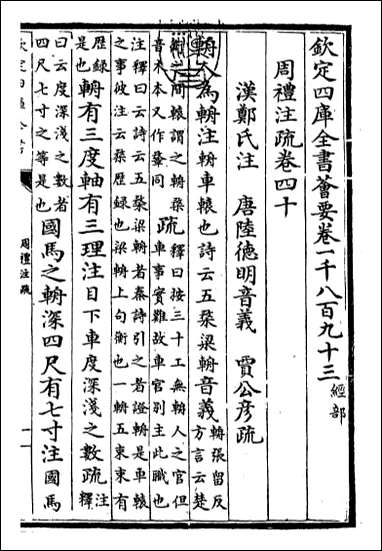 欽定四庫全書薈要卷一千八百九十三 經部
周禮注疏卷四十
漢鄭氏注 唐陸德明音義 賈公彥疏
輈人為輈注輈車轅也詩云五楘梁輈音義輈張留反方言云楚
衛之間轅謂之輈楘音木本又作鞪同疏釋曰按三十工無輈人之官但車事實難故車官別主此職也
注釋曰云詩云五楘梁輈者秦詩引之者證輈是車轅
之事彼注云楘歷録也梁輈上句衡也一輈五束束有
歷録是也輈有三度軸有三理注目下車度深淺之數疏釋注
曰云度深淺之數者四尺七寸之等是也國馬之輈深四尺有七寸注國馬
欽定四庫全書
周禮注疏
一